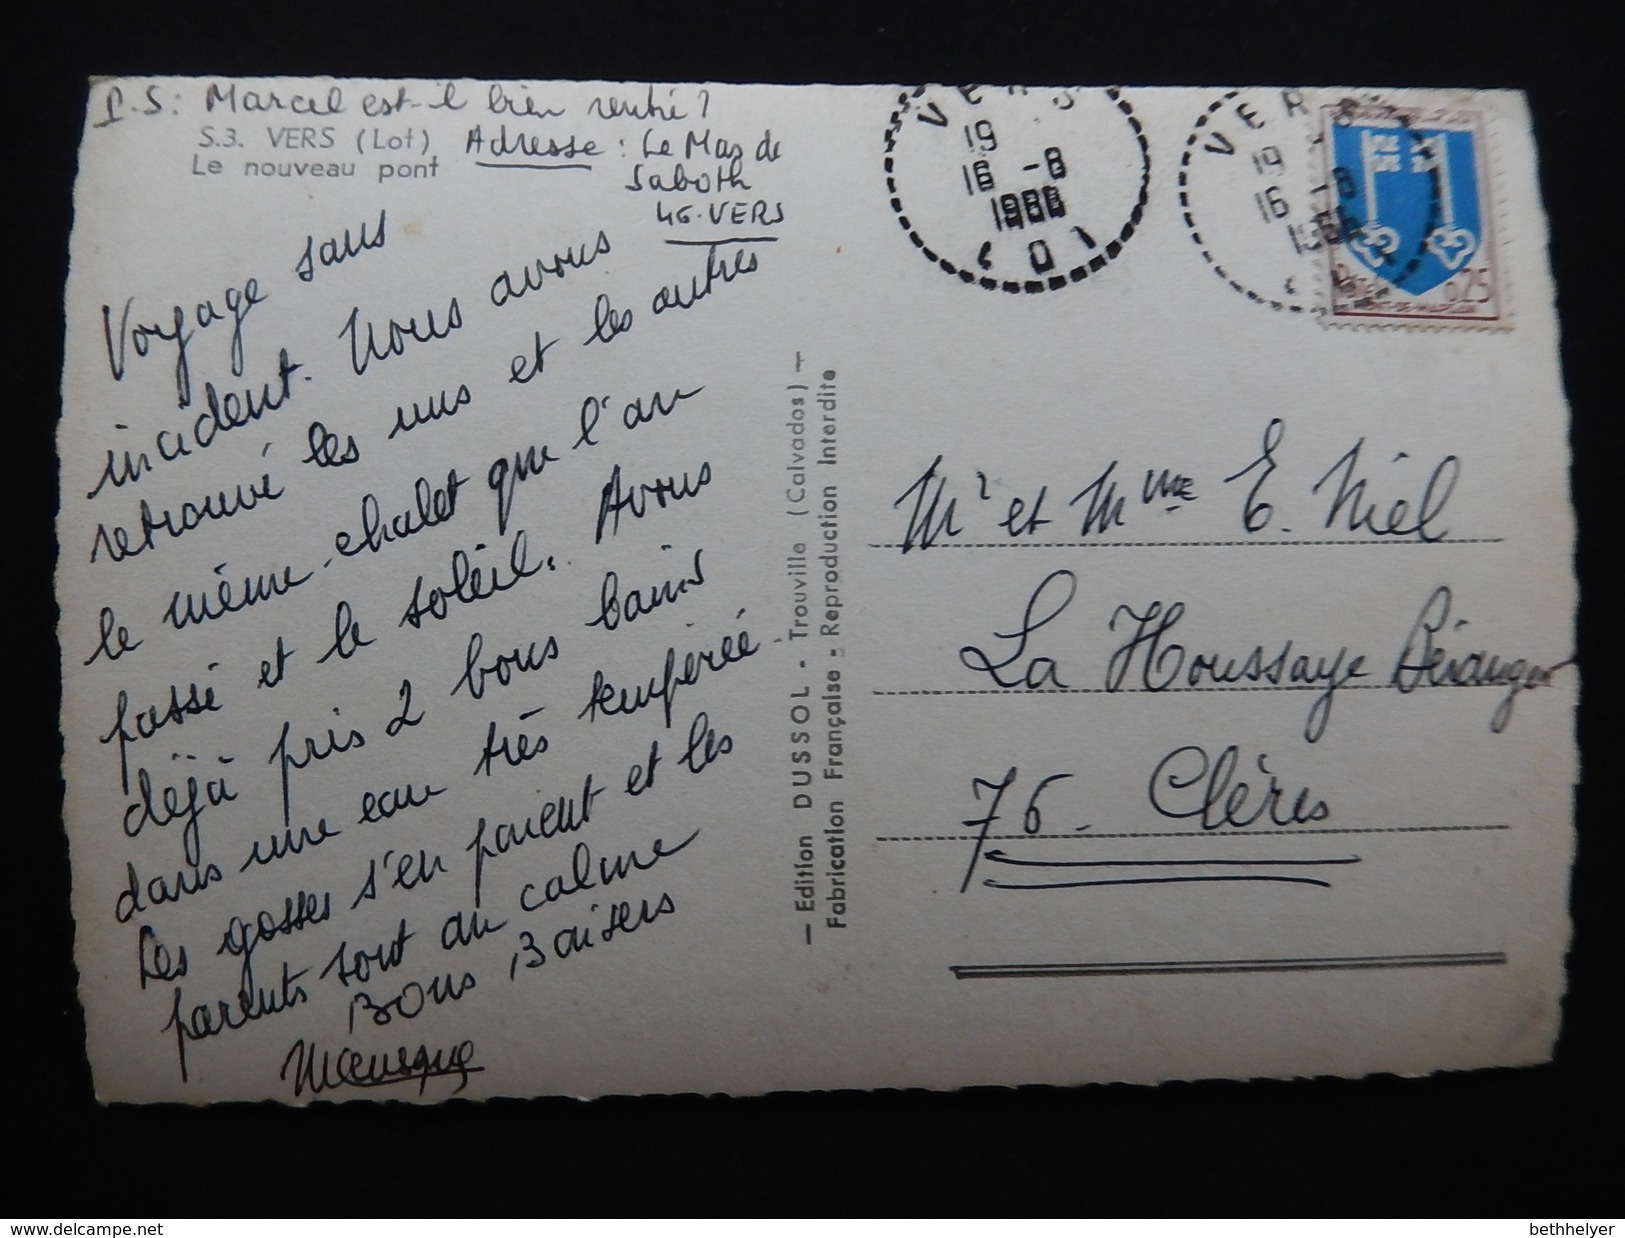 P.S: Marcel est-il bien rentré?
S.3. VERS (Lot)
Le nouveau pont
Adresse : Le Mas de
Saboth
46-VERS
Voyage sans
incident. Nous avons
retrouvé les uns et les autres
le même chalet que l'an
passé et le soleil. Avons
déjà pris 2 bons bains
dans une eau très tempérée
Les gosses s'en paient et les
parents sont au calme
Bons Baisers
— Edition DUSSOL - Trouville (Calvados) —
Fabrication Française - Reproduction Interdite
VERS
19
16 -8
1966
LOT
VERS
19
16 -8
0,25
MONT-DE-MARSAN
Mr et Mme E. Niel
La Houssaye Béranger
76 - Clères
delcampe.net
bethhelyer